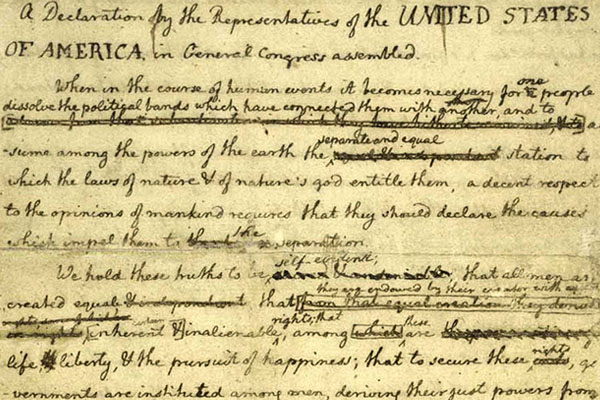 A Declaration by the Representatives of the UNITED STATES
OF AMERICA, in General Congress assembled.
When in the course of human events it becomes necessary for one people
dissolve the political bands which have connected them with another, and to
separate and equal
-sume among the powers of the earth the station to
which the laws of nature & of nature's god entitle them, a decent respect
to the opinions of mankind requires that they should declare the causes
which impel them to the separation.
self-evident;
We hold these truths to be that all men are
they are endowed by their creator with
created equal & independant that from that equal creation they derive
rights; that these
inherent & inalienable, among which are
rights
life, liberty, & the pursuit of happiness; that to secure these
-vernments are instituted among men, deriving their just powers from